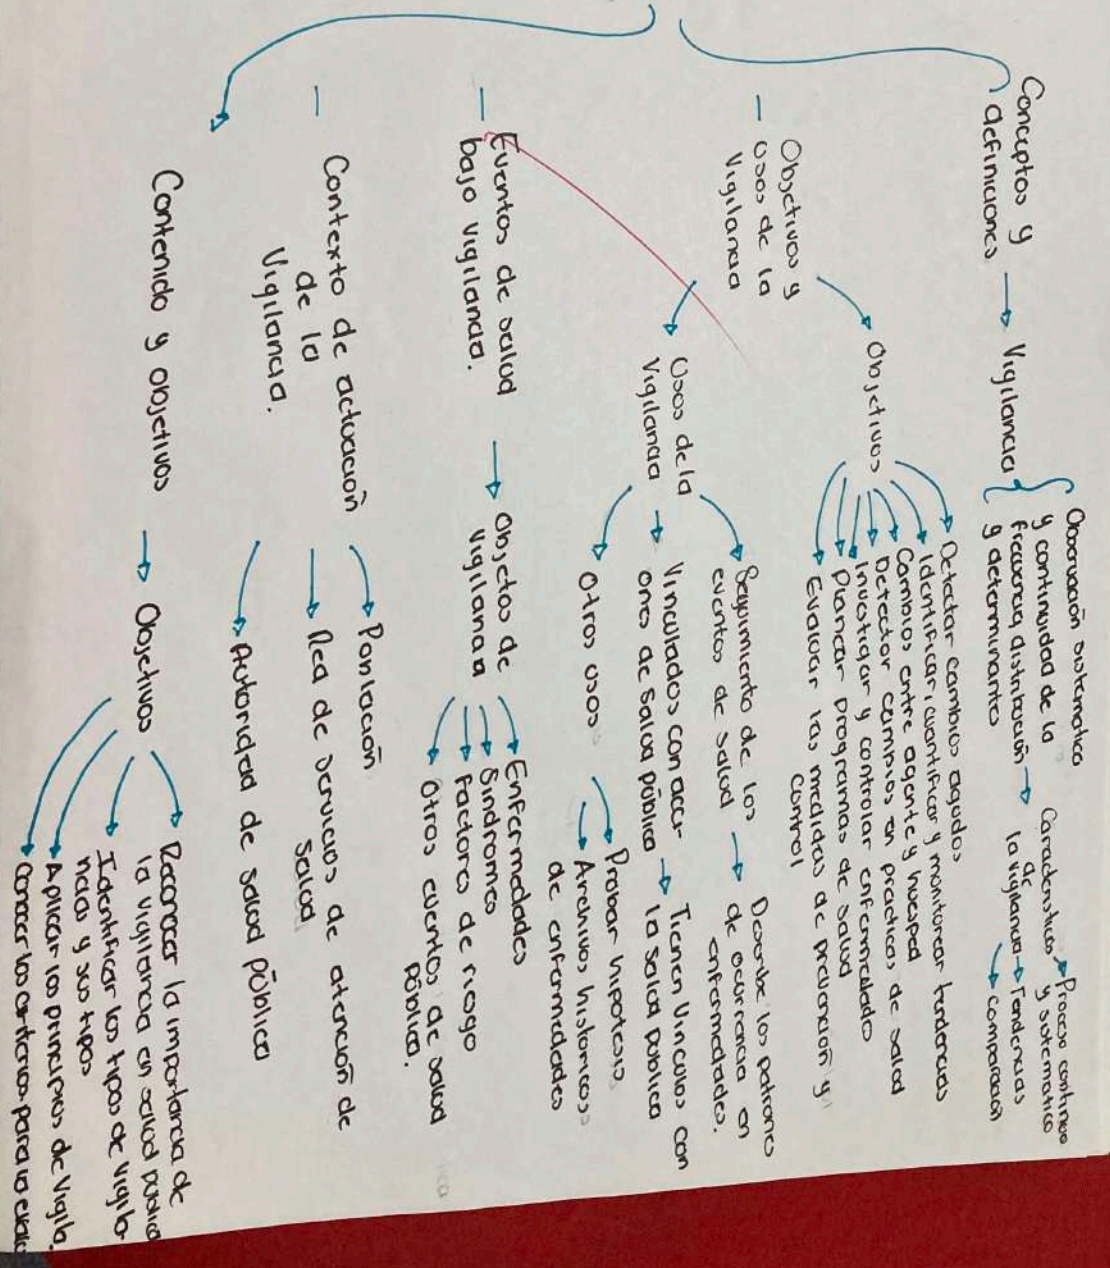 Conceptos y
definiciones
Vigilancia
Observación sistematica
y continuidad de la
frecuencia, distribución
y determinantes
Caracteristicas
de
la vigilancia
Proceso continuo
y sistematico
Tendencias
Comparación
Objetivos y
usos de la
Vigilancia
Objetivos
Detectar cambios agudos
Identificar, cuantificar y monitorear tendencias
Cambios entre agente y huesped
Detector cambios en practicas de salud
Investigar y controlar enfermedades
Planear programas de salud
Evaluar las medidas de prevención y
control
Usos de la
Vigilancia
Seguimiento de los
eventos de salud
Describe los patrones
de ocurrencia en
enfermedades.
Vinculados con acci-
ones de salud pública
Tienen Vinculos con
la salud publica
Otros usos
Probar hipotesis
Archivos historicos
de enfermedades
Eventos de salud
bajo vigilancia.
Objetos de
Vigilancia
Enfermedades
Sindromes
Factores de riesgo
Otros eventos de salud
pública.
Contexto de actuación
de la
Vigilancia.
Población
Red de servicios de atención de
Salud
Autoridad de salud pública
Contenido y objetivos
Objetivos
Reconocer la importancia de
la vigilancia en salud publica
Identificar los tipos de vigila-
ncias y sus tipos
Aplicar los principios de Vigila.
Conocer los criterios para la